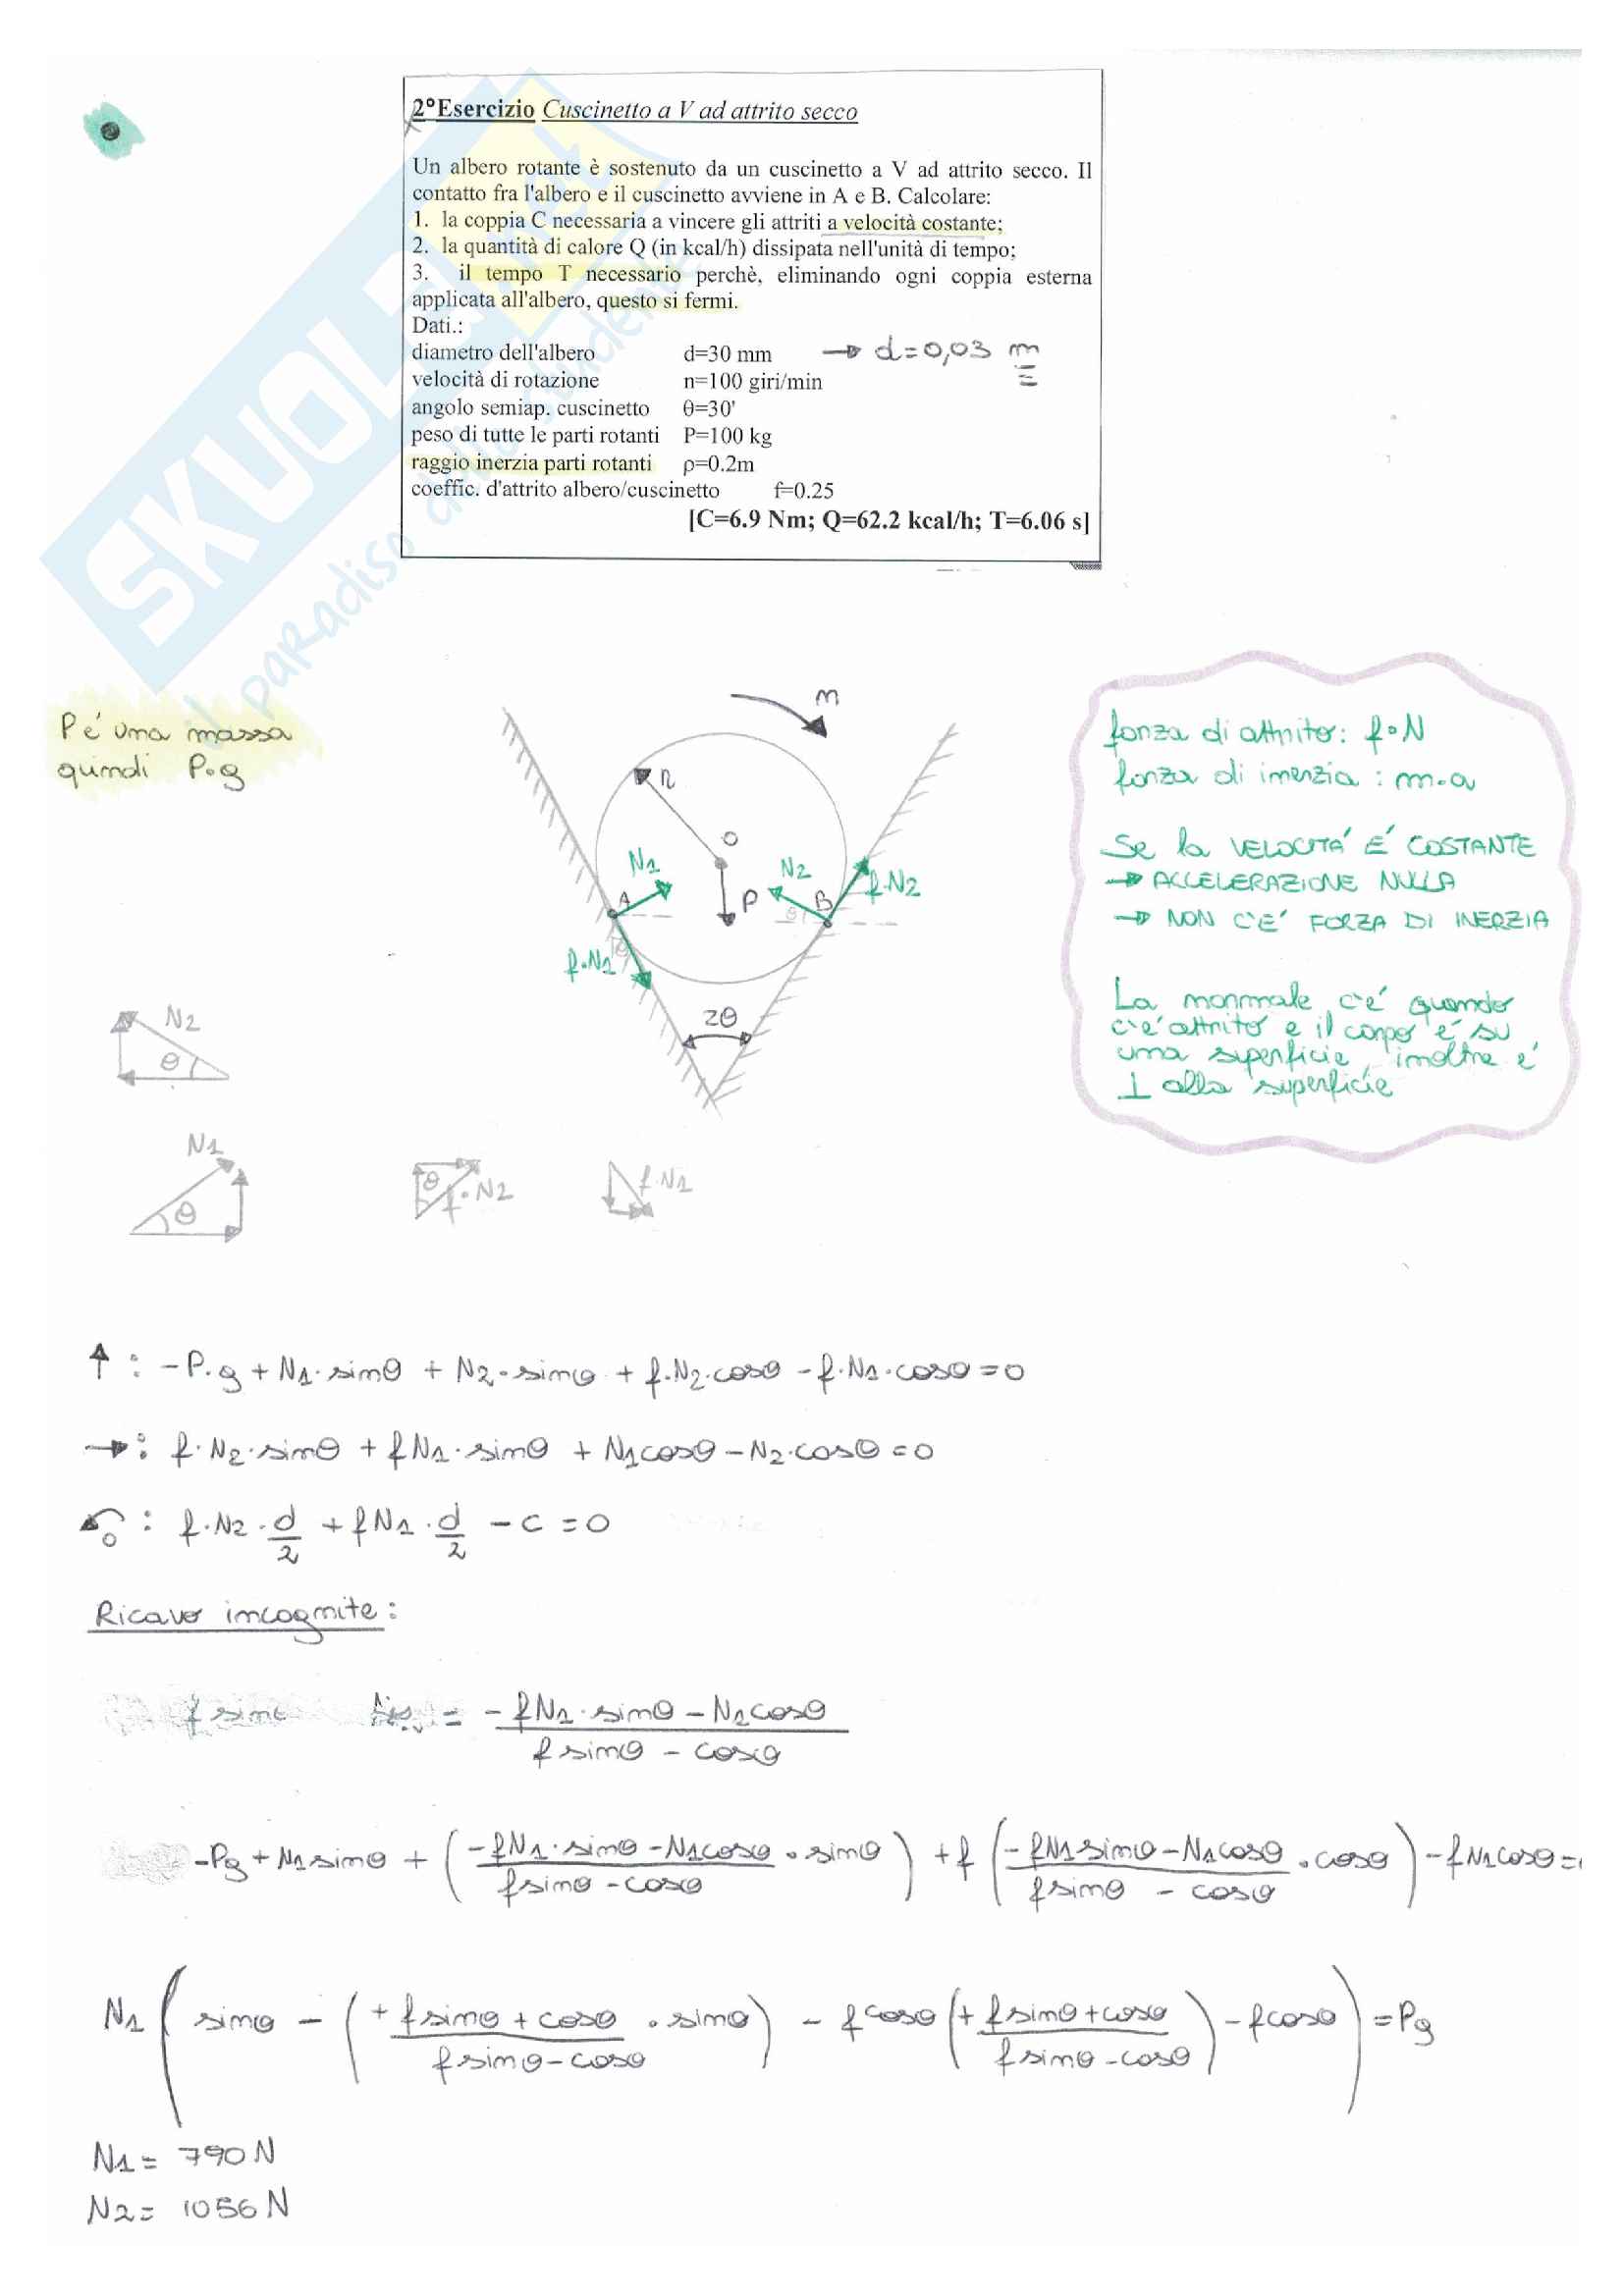 2°Esercizio Cuscinetto a V ad attrito secco
Un albero rotante è sostenuto da un cuscinetto a V ad attrito secco. Il
contatto fra l'albero e il cuscinetto avviene in A e B. Calcolare:
1. la coppia C necessaria a vincere gli attriti a velocità costante;
2. la quantità di calore Q (in kcal/h) dissipata nell'unità di tempo;
3. il tempo T necessario perchè, eliminando ogni coppia esterna
applicata all'albero, questo si fermi.
Dati.:
diametro dell'albero d=30 mm → d=0,03 m
velocità di rotazione n=100 giri/min
angolo semiap. cuscinetto θ=30'
peso di tutte le parti rotanti P=100 kg
raggio inerzia parti rotanti ρ=0.2m
coeffic. d'attrito albero/cuscinetto f=0.25
[C=6.9 Nm; Q=62.2 kcal/h; T=6.06 s]
SKUOLA.net
il paradiso dello studente
P é una massa
quindi P•g
m
r
O
N1
N2
A
P
θ
B
f•N2
f•N1
θ
2θ
forza di attrito: f•N
forza di inerzia : m•a
Se la VELOCITÁ É COSTANTE
→ ACCELERAZIONE NULLA
→ NON C'É FORZA DI INERZIA
La normale c'é quando
c'é attrito e il corpo é su
una superficie, inoltre é
⊥ alla superficie
N2
θ
N1
θ
θ
f•N2
f•N1
↑ : -P•g + N1•sinθ + N2•sinθ + f•N2•cosθ - f•N1•cosθ = 0
→ : f•N2•sinθ + fN1•sinθ + N1cosθ - N2•cosθ = 0
↶O : f•N2•d/2 + fN1•d/2 - C = 0
Ricavo incognite:
f sinθ = (-fN1•sinθ - N1cosθ)/(f sinθ - cosθ)
-Pg + N1sinθ + ((-fN1•sinθ - N1cosθ)/(fsinθ - cosθ) • sinθ) + f((-fN1sinθ - N1cosθ)/(fsinθ - cosθ) • cosθ) - fN1cosθ =
N1(sinθ - ((+fsinθ + cosθ)/(fsinθ - cosθ) • sinθ) - fcosθ((+fsinθ + cosθ)/(fsinθ - cosθ)) - fcosθ) = Pg
N1 = 790 N
N2 = 1056 N